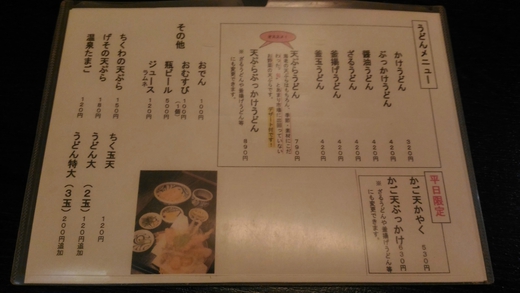 うどんメニュー
かけうどん 320円
ぶっかけうどん 420円
醤油うどん 420円
ざるうどん 420円
釜揚げうどん 420円
釜玉うどん 420円
天ぷらうどん 790円
天ぷらぶっかけうどん 890円
※ざるうどんや釜揚げうどん等
にも変更できます。
平日限定
かご天かやく 630円
かご天ぶっかけ 630円
※ざるうどんや釜揚げうどん等
にも変更できます。
その他
おでん 100円
おむすび 160円
(1個)
瓶ビール 500円
ジュース 120円
ラムネ
ちくわの天ぷら 150円
げその天ぷら 180円
温泉たまご
ちく玉天 120円
うどん大(2玉) 120円追加
うどん特大(3玉) 200円追加